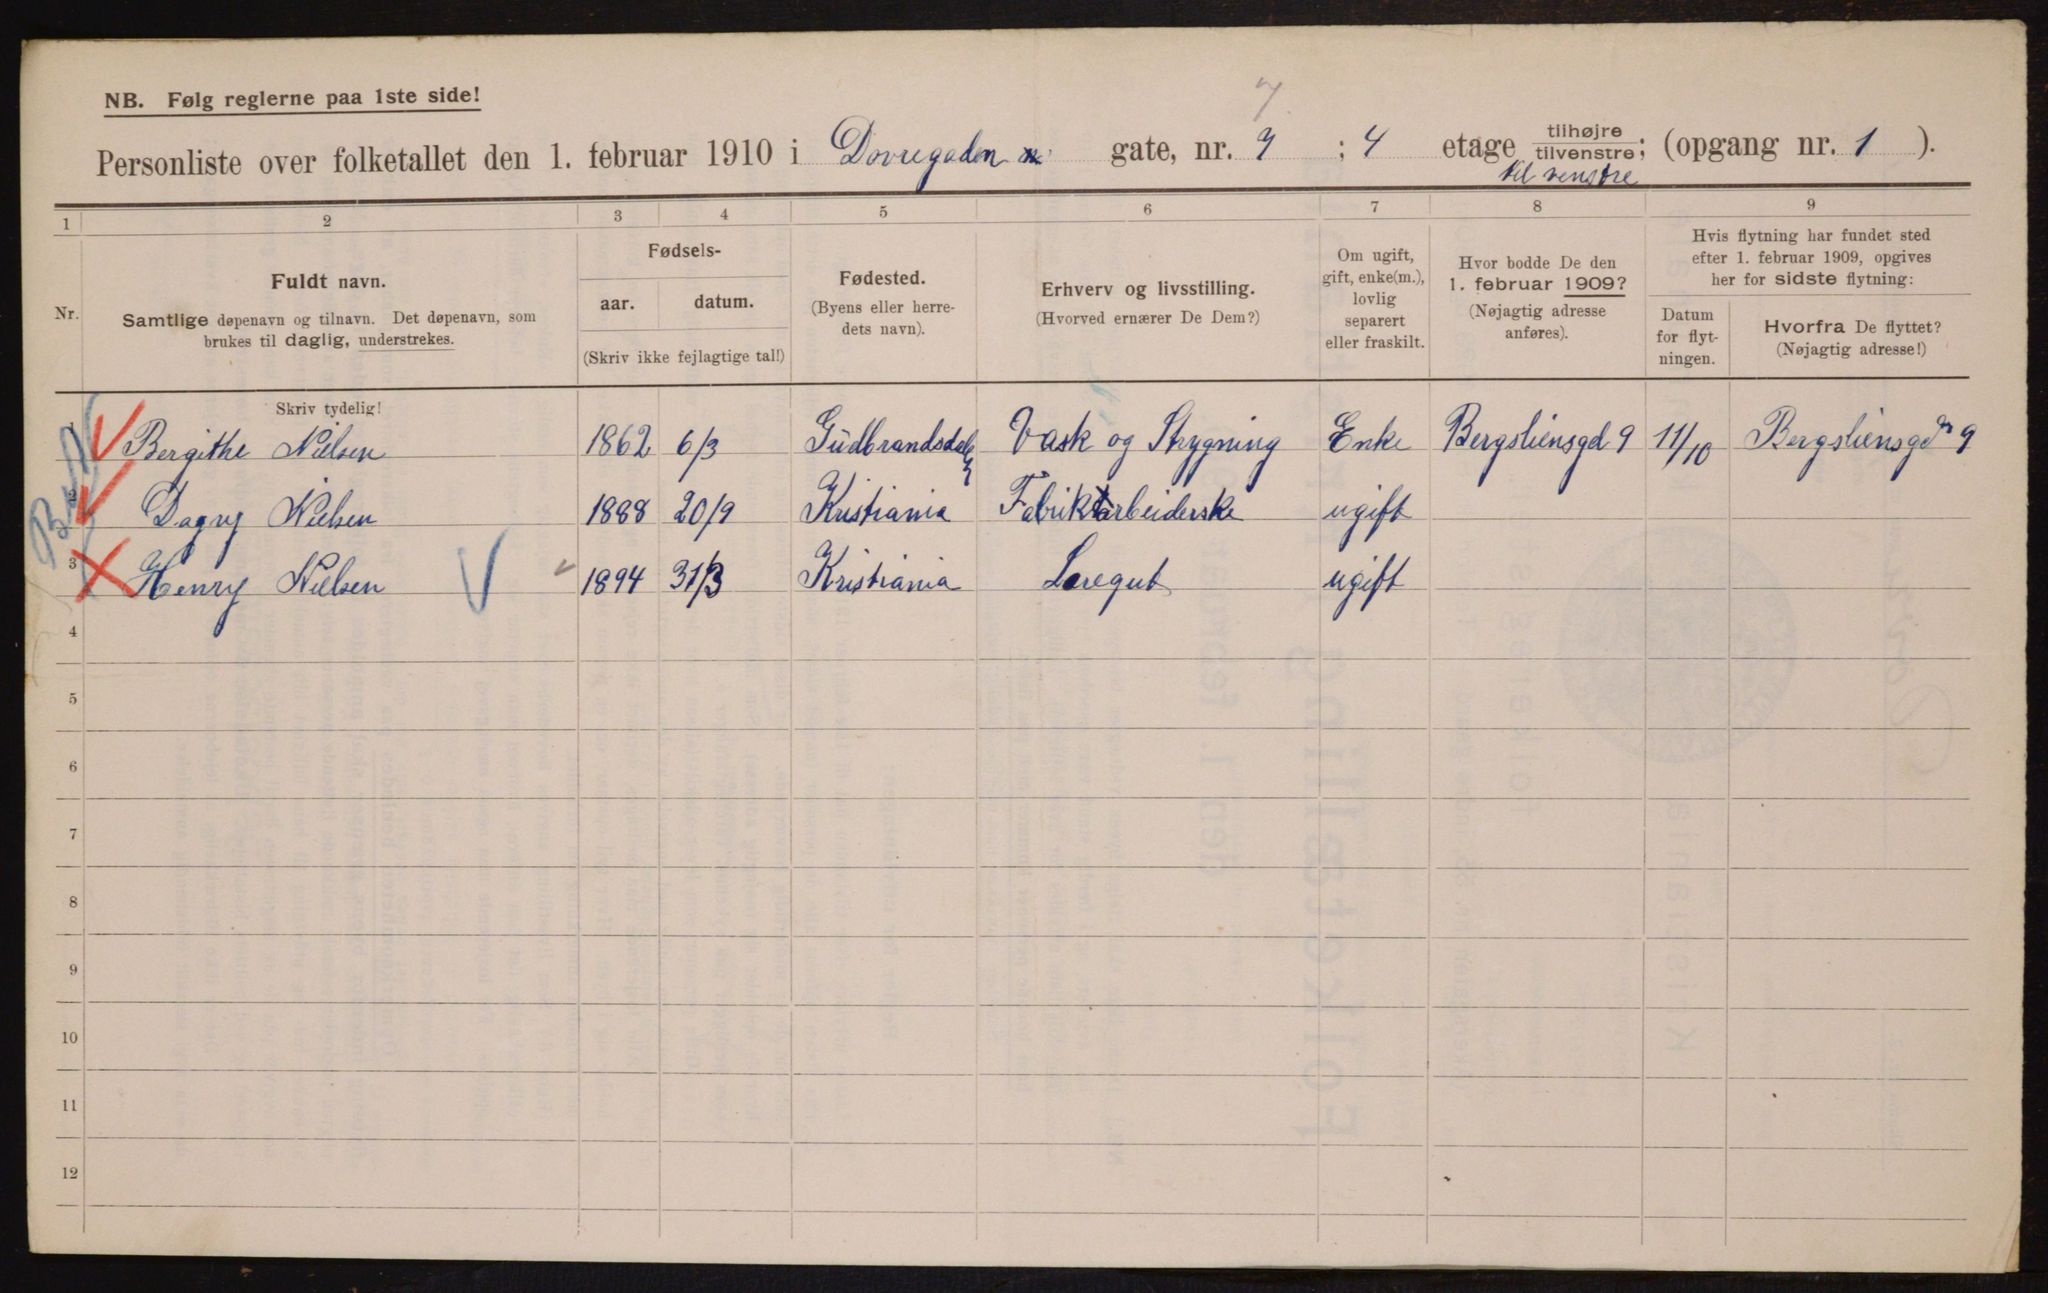 NB. Følg reglerne paa 1ste side!
7
Personliste over folketallet den 1. februar 1910 i Dovregaden gate, nr. 7 ; 4 etage tilhøjre / tilvenstre ; (opgang nr. 1 ).
til venstre
1 2 3 4 5 6 7 8 9
Nr.
Fuldt navn.
Samtlige døpenavn og tilnavn. Det døpenavn, som
brukes til daglig, understrekes.
Fødsels-
aar. datum.
(Skriv ikke fejlagtige tal!)
Fødested.
(Byens eller herre-
dets navn).
Erhverv og livsstilling.
(Hvorved ernærer De Dem?)
Om ugift,
gift, enke(m.),
lovlig
separert
eller fraskilt.
Hvor bodde De den
1. februar 1909?
(Nøjagtig adresse
anføres).
Hvis flytning har fundet sted
efter 1. februar 1909, opgives
her for sidste flytning:
Datum
for flyt-
ningen.
Hvorfra De flyttet?
(Nøjagtig adresse!)
Skriv tydelig!
1 Bergithe Nielsen 1862 6/3 Gudbrandsdalen Vask og Strygning Enke Bergsliensgd 9 11/10 Bergsliensgd 9
2 Dagny Nielsen 1888 20/9 Kristiania Fabrikarbeiderske ugift
3 Henry Nielsen 1894 31/3 Kristiania Læregut ugift
4
5
6
7
8
9
10
11
12